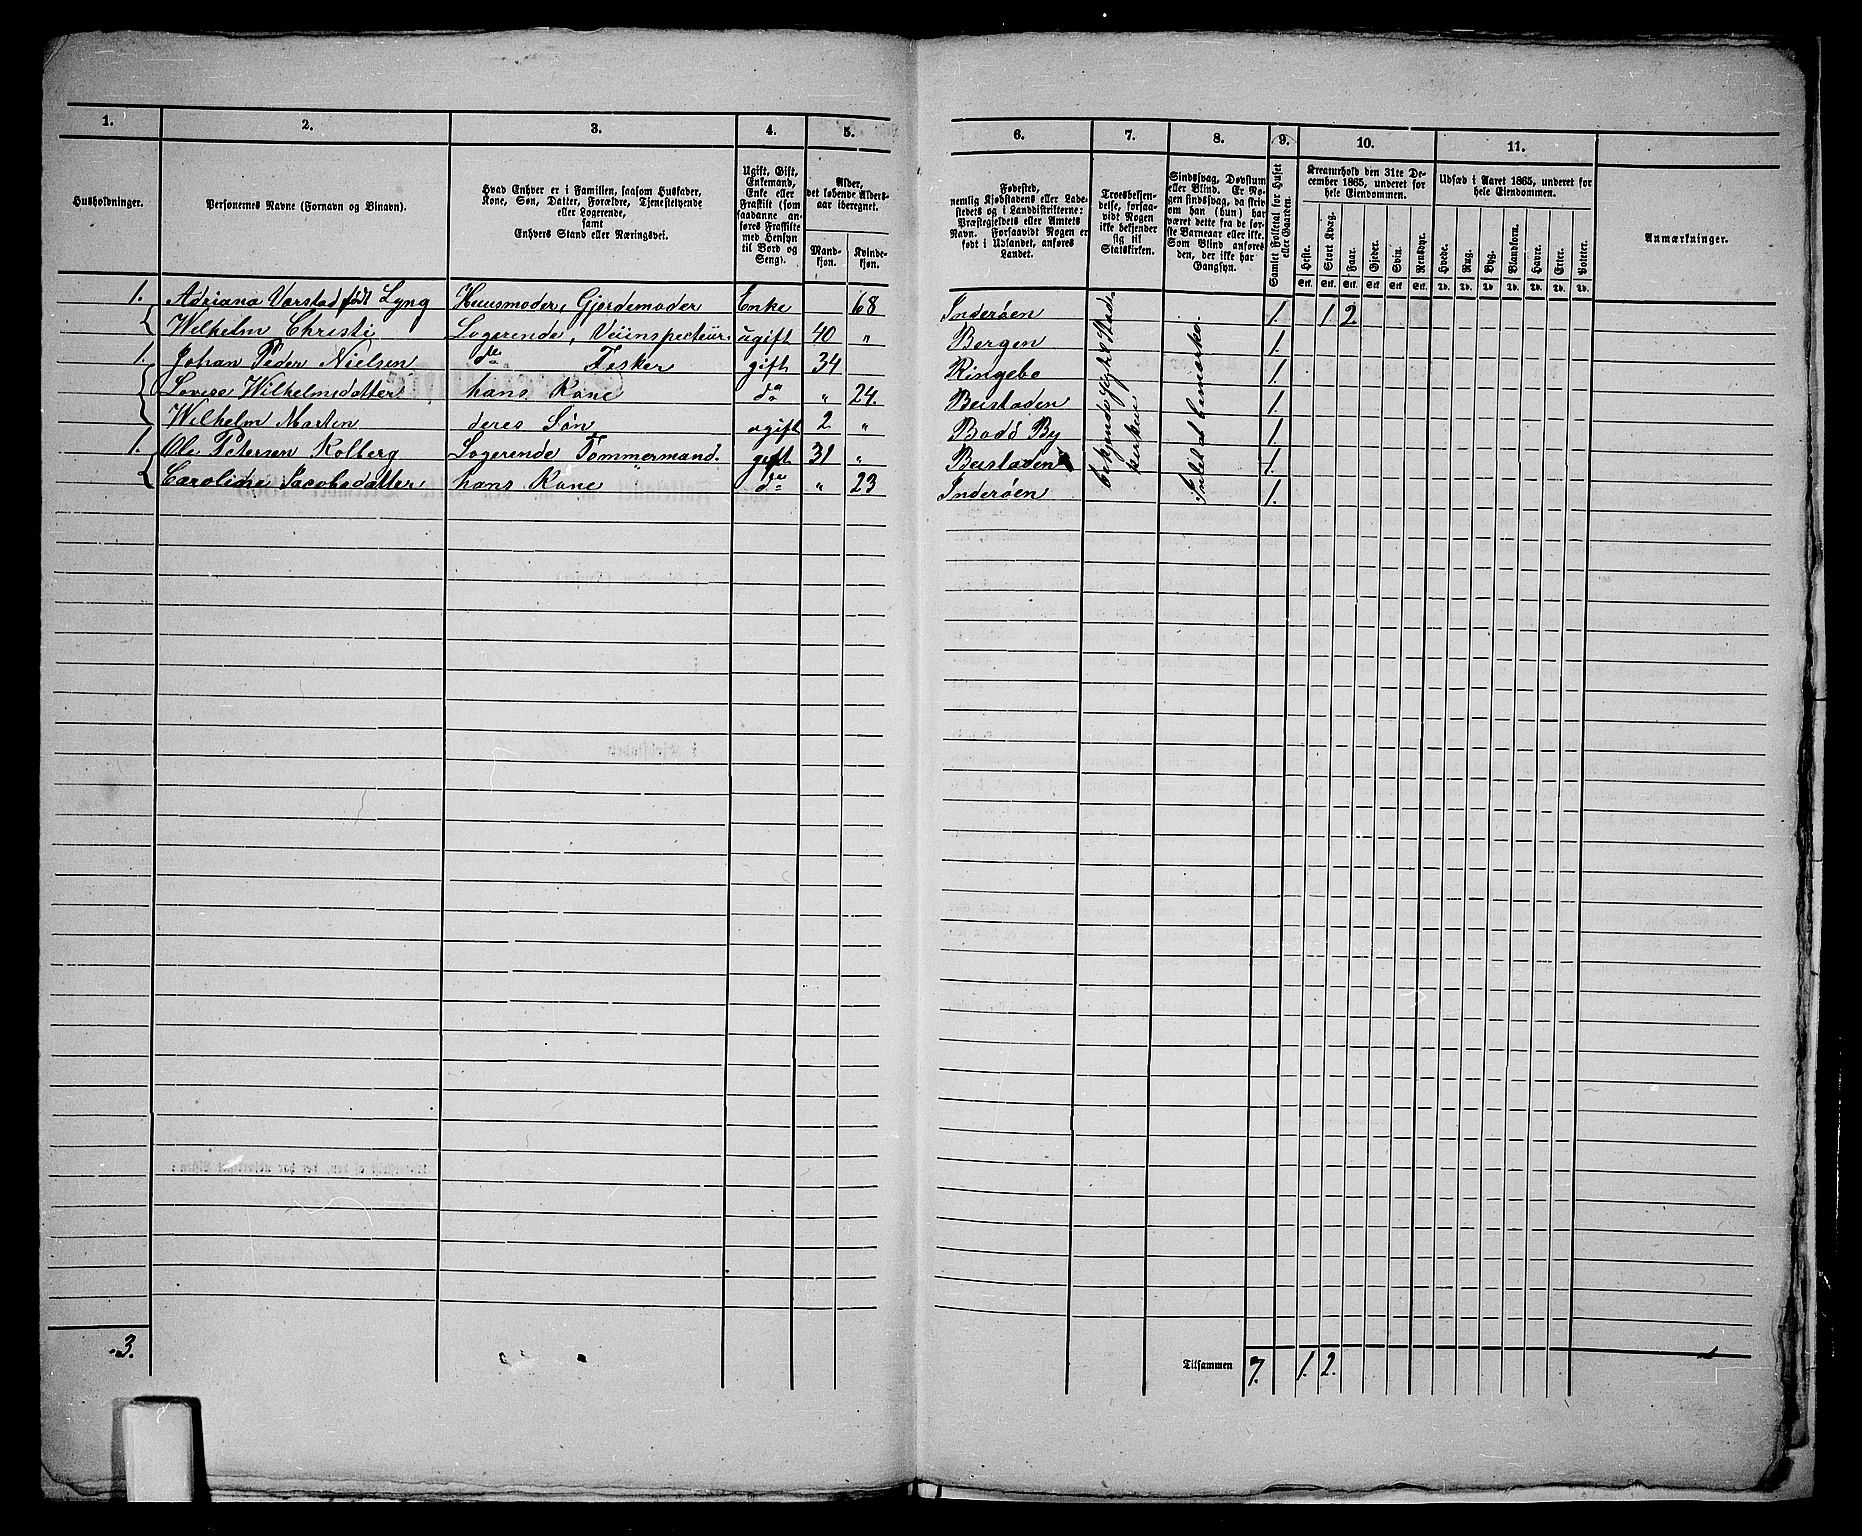 1. 2. 3. 4. 5. 6. 7. 8. 9. 10. 11.
Husholdninger.
Personernes Navne (Fornavn og Binavn).
Hvad Enhver er i Familien, saasom Husfader,
Kone, Søn, Datter, Forældre, Tjenestetyende
eller Logerende,
samt
Enhvers Stand eller Næringsvei.
Ugift, Gift,
Enkemand,
Enke eller
Fraskilt (som
saadanne an-
føres Fraskilte
med Hensyn
til Bord og
Seng).
Alder,
det løbende Alders-
aar iberegnet.
Mand-
kjøn.
Kvinde-
kjøn.
Fødested,
nemlig Kjøbstadens eller Lade-
stedets og i Landdistrikterne:
Præstegjeldets eller Amtets
Navn. Forsaavidt Nogen er
født i Udlandet, anføres
Landet.
Troesbekjen-
delse, forsaa-
vidt Nogen
ikke bekjender
sig til
Statskirken.
Sindssvag, Døvstum
eller Blind. Er No-
gen sindssvag, da skriv
om han (hun) har
været dette fra de før-
ste Barneaar eller ikke.
Som Blind anføres
den, der ikke har
Gangsyn.
Samlet Folketal for Huset
eller Gaarden.
Kreaturhold den 31te De-
cember 1865, underet for
hele Eiendommen.
Heste. Stort Kvæg. Faar. Gjeder. Svin. Rensdyr.
Stk. Stk. Stk. Stk. Stk. Stk.
Udsæd i Aaret 1865, underet for
hele Eiendommen.
Hvede. Rug. Byg. Blandkorn. Havre. Erter. Poteter.
Td. Td. Td. Td. Td. Td. Td.
Anmærkninger.
1. Adriana Vorstad født Lyng Huusmoder, Gjordemoder Enke 68 Inderøen 1. 1. 2
Wilhelm Christi Logerende, Veiinspecteur. ugift 40 " Bergen 1.
1. Johan Peder Nielsen do Fisker gift 34 Ringebo 1.
Lovise Wilhelmsdatter hans Kone do " 24. Beistaden 1.
Wilhelm Martin deres Søn ugift 2 " Bodö By 1.
1. Ole Petersen Kolberg Logerende Tömmermand. gift 31 " Beistaden 1.
Caroline Jacobsdatter hans Kone do " 23 Inderøen 1.
Intet at bemærke.
3.
Tilsammen 7. 1. 2.